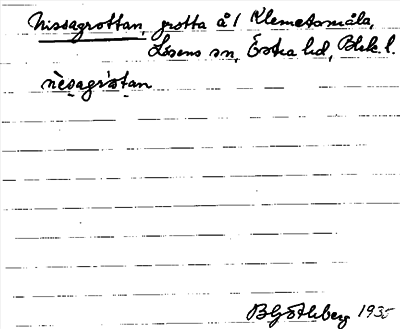 Nissagrottan, grotta å 1 Klemetsmåla,
Lösens sn, Östra hd, Blek. l.
nèsagrơtan
B Göthberg 1935